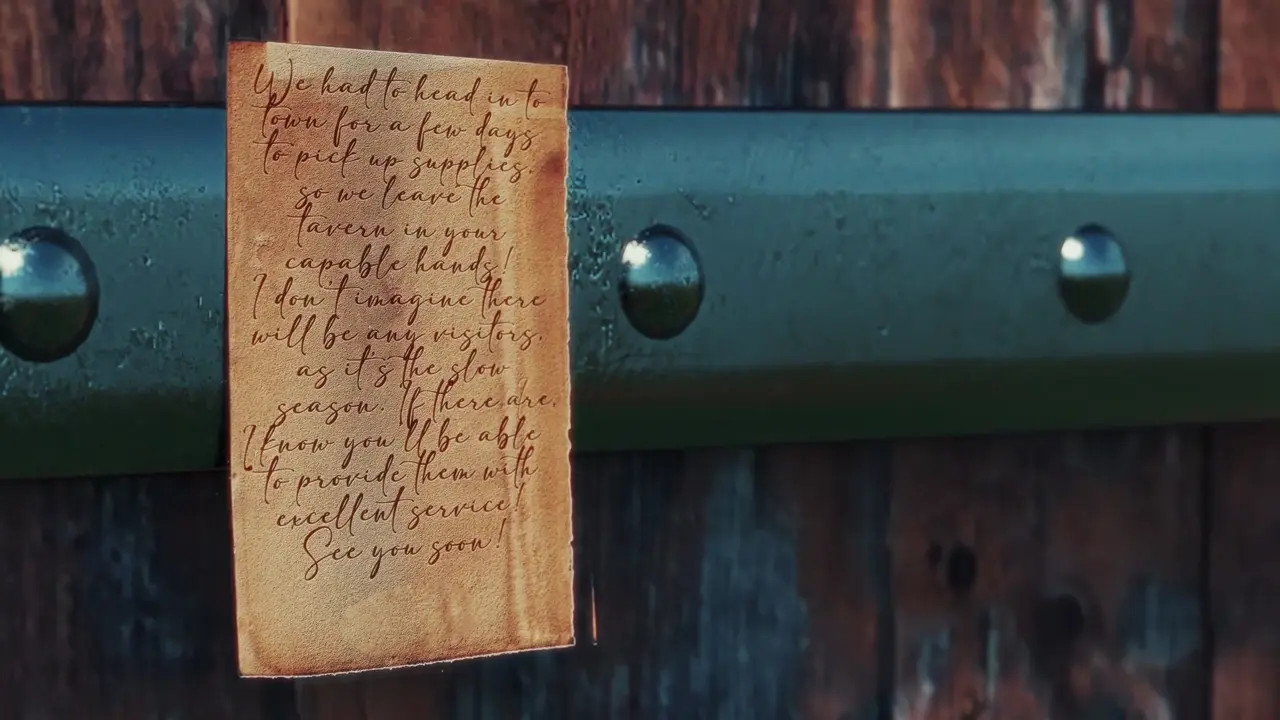 We had to head in to
town for a few days
to pick up supplies.
so we leave the
tavern in your
capable hands!
I don't imagine there
will be any visitors.
as it's the slow
season. If there are.
I know you'll be able
to provide them with
excellent service!
See you soon!